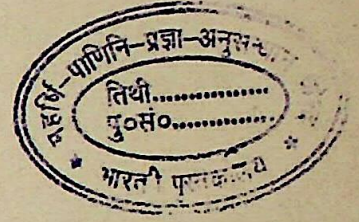 महर्षि-पाणिनि-प्रज्ञा-अनुसन्धान
तिथी................
पु०सं०................
* भारती पुस्तकालय *